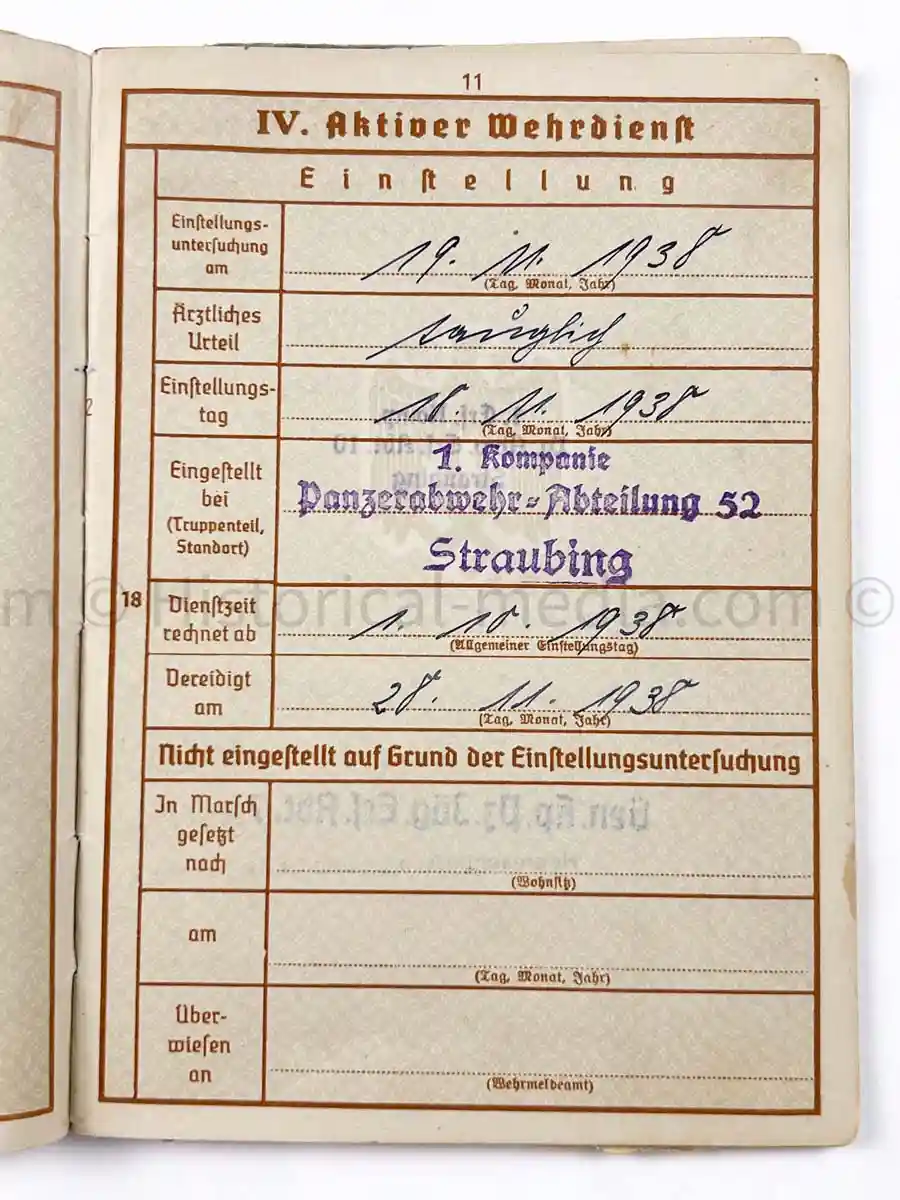 11
IV. Aktiver Wehrdienst
Einstellung
Einstellungs-
untersuchung
am
19. 11. 1938
(Tag, Monat, Jahr)
Ärztliches
Urteil
tauglich
Einstellungs-
tag
18. 11. 1938
(Tag, Monat, Jahr)
Eingestellt
bei
(Truppenteil,
Standort)
1. Kompanie
Panzerabwehr=Abteilung 52
Straubing
18
Dienstzeit
rechnet ab
1. 10. 1938
(Allgemeiner Einstellungstag)
Vereidigt
am
28. 11. 1938
(Tag, Monat, Jahr)
Nicht eingestellt auf Grund der Einstellungsuntersuchung
In Marsch
gesetzt
nach
(Wohnsitz)
am
(Tag, Monat, Jahr)
Über-
wiesen
an
(Wehrmeldeamt)
m © Historical-media.com ©